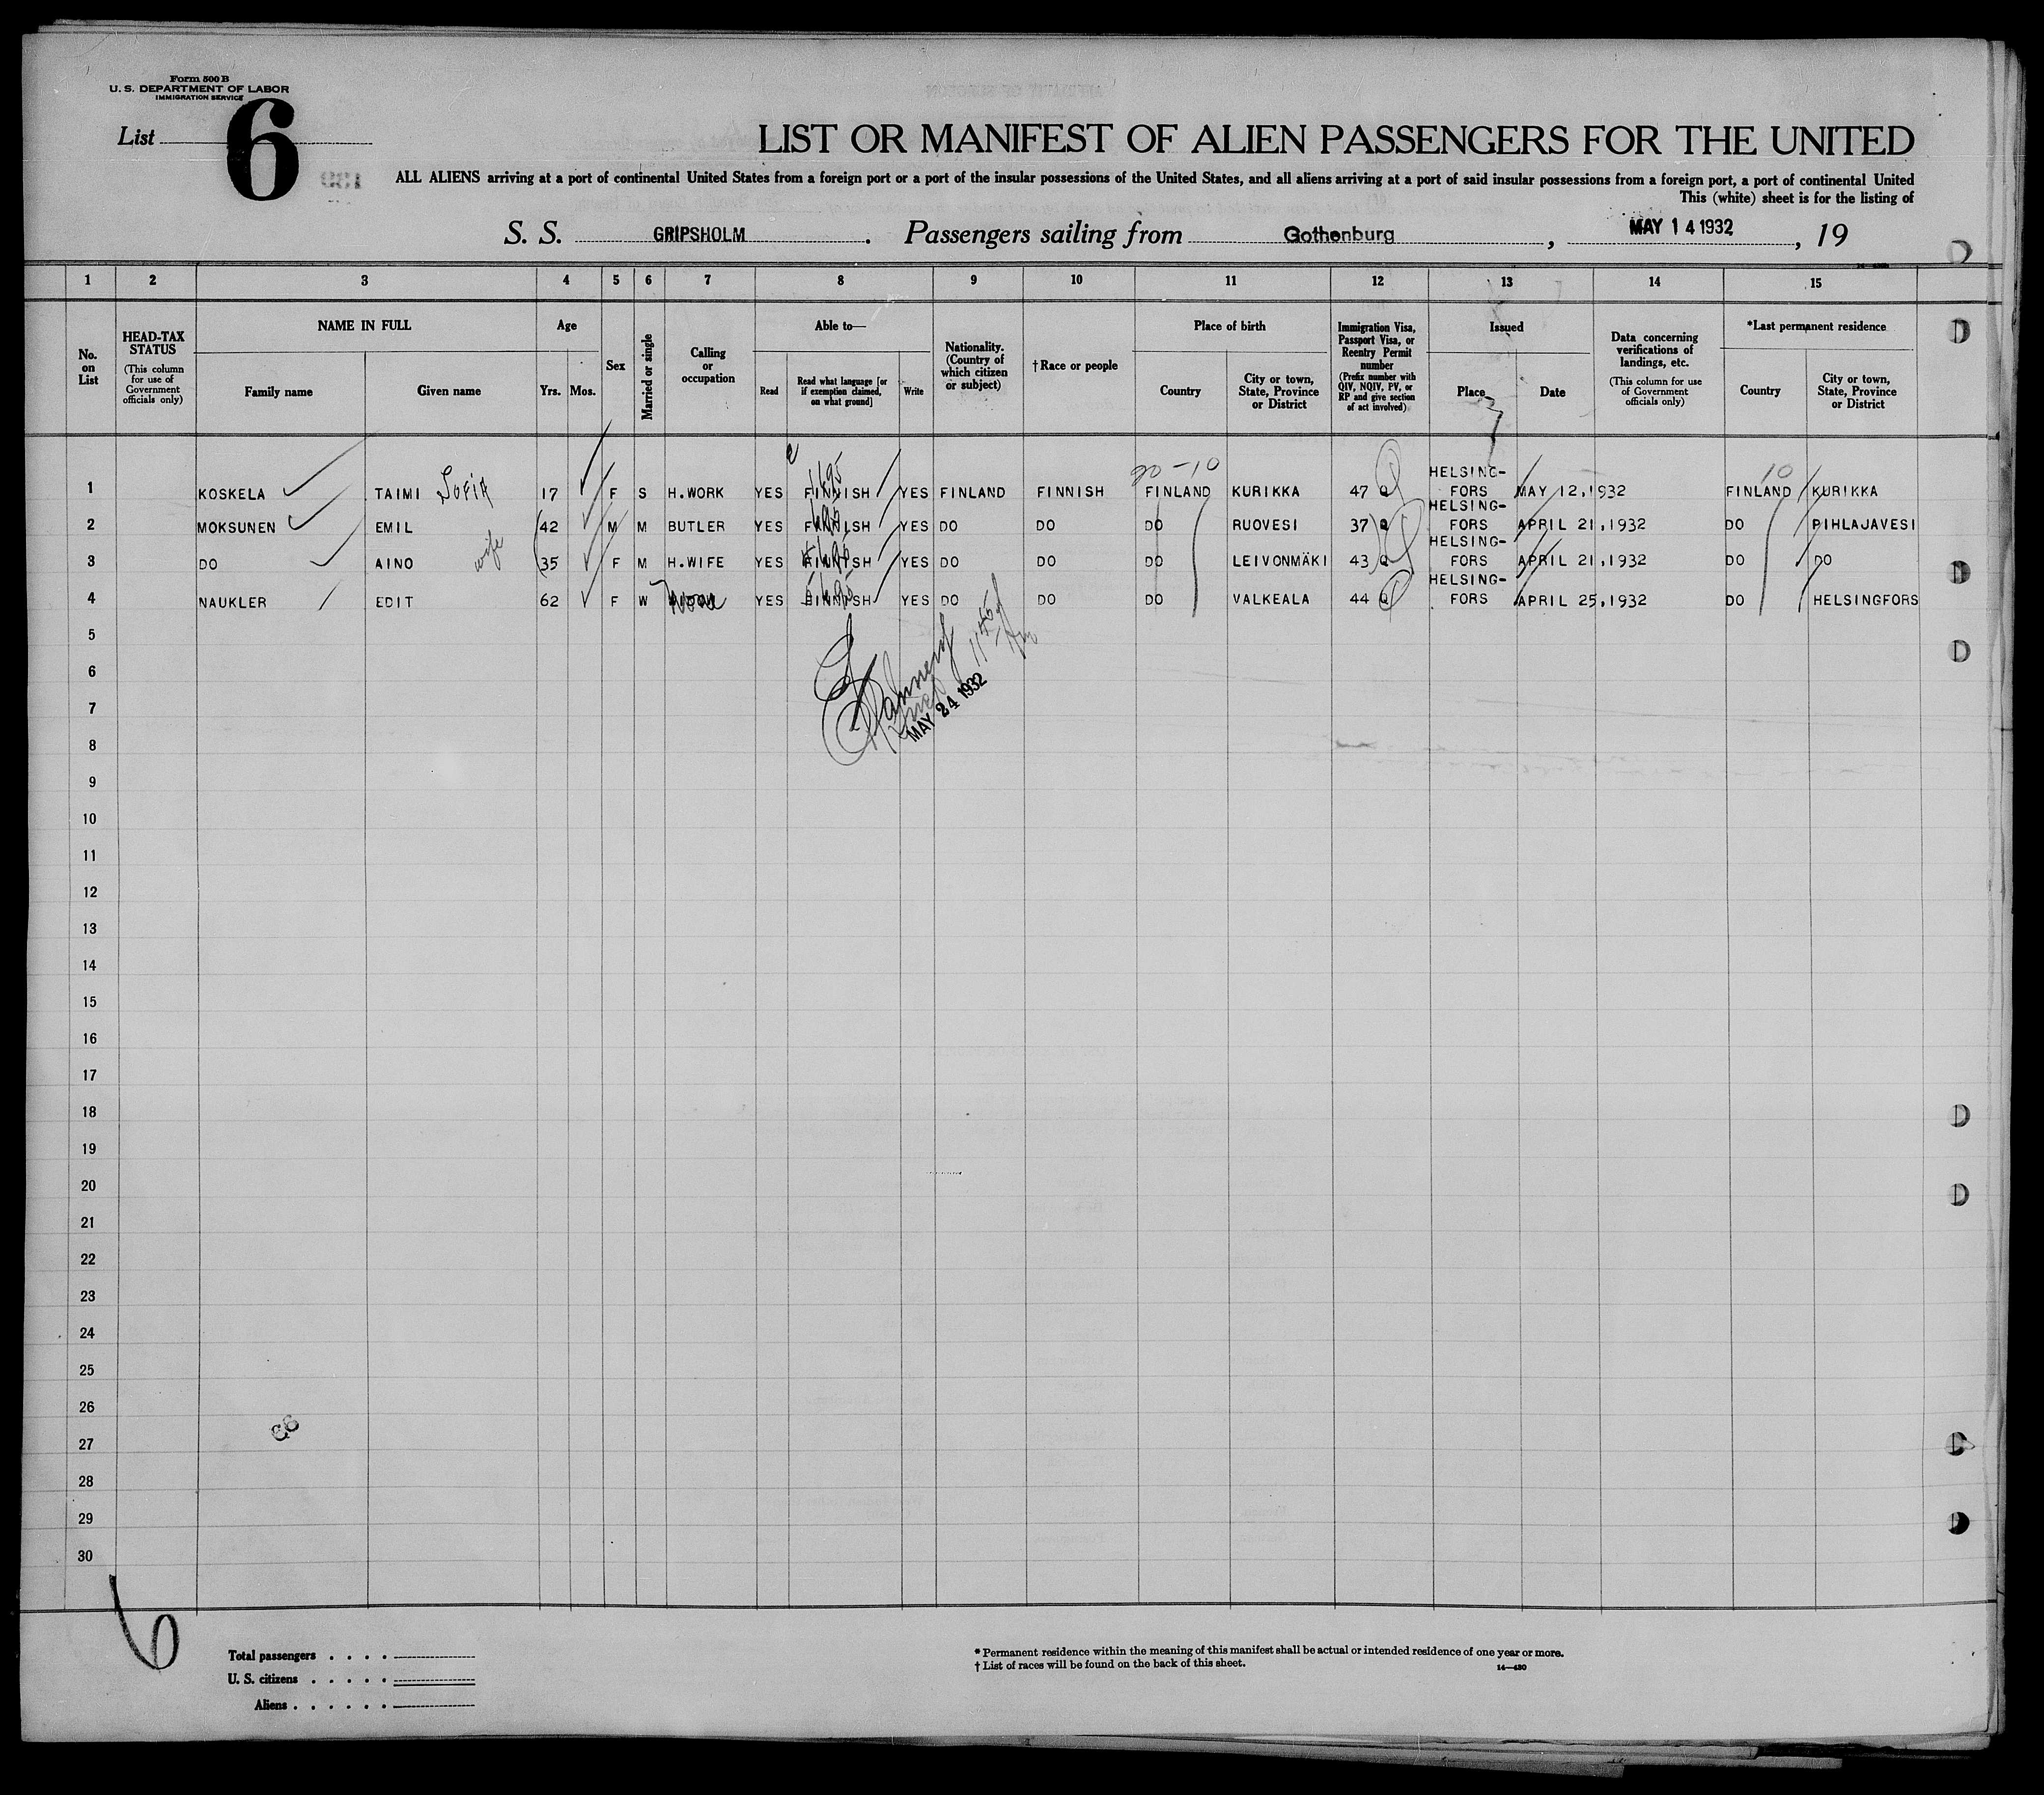 Form 500 B
U. S. DEPARTMENT OF LABOR
IMMIGRATION SERVICE
List 6
LIST OR MANIFEST OF ALIEN PASSENGERS FOR THE UNITED
ALL ALIENS arriving at a port of continental United States from a foreign port or a port of the insular possessions of the United States, and all aliens arriving at a port of said insular possessions from a foreign port, a port of continental United
This (white) sheet is for the listing of
S. S. GRIPSHOLM. Passengers sailing from Gothenburg, MAY 14 1932, 19
1 2 3 4 5 6 7 8 9 10 11 12 13 14 15
No. on List
HEAD-TAX STATUS (This column for use of Government officials only)
NAME IN FULL
Family name Given name
Age
Yrs. Mos.
Sex
Married or single
Calling or occupation
Able to—
Read Read what language [or if exemption claimed, on what ground] Write
Nationality. (Country of which citizen or subject)
†Race or people
Place of birth
Country City or town, State, Province or District
Immigration Visa, Passport Visa, or Reentry Permit number (Prefix number with QIV, NQIV, PV, or RP and give section of act involved)
Issued
Place Date
Data concerning verifications of landings, etc. (This column for use of Government officials only)
*Last permanent residence
Country City or town, State, Province or District
20-10 10
1 KOSKELA TAIMI Sofia 17 F S H.WORK YES FINNISH YES FINLAND FINNISH FINLAND KURIKKA 47 Q HELSING-FORS MAY 12,1932 FINLAND KURIKKA
2 MOKSUNEN EMIL 42 M M BUTLER YES FINNISH YES DO DO DO RUOVESI 37 Q HELSING-FORS APRIL 21,1932 DO PIHLAJAVESI
3 DO AINO wife 35 F M H.WIFE YES FINNISH YES DO DO DO LEIVONMÄKI 43 Q HELSING-FORS APRIL 21,1932 DO DO
4 NAUKLER EDIT 62 F W None YES FINNISH YES DO DO DO VALKEALA 44 Q HELSING-FORS APRIL 25,1932 DO HELSINGFORS
MAY 24 1932
5
6
7
8
9
10
11
12
13
14
15
16
17
18
19
20
21
22
23
24
25
26
27
28
29
30
6
Total passengers
U. S. citizens
Aliens
* Permanent residence within the meaning of this manifest shall be actual or intended residence of one year or more.
† List of races will be found on the back of this sheet.
14—430